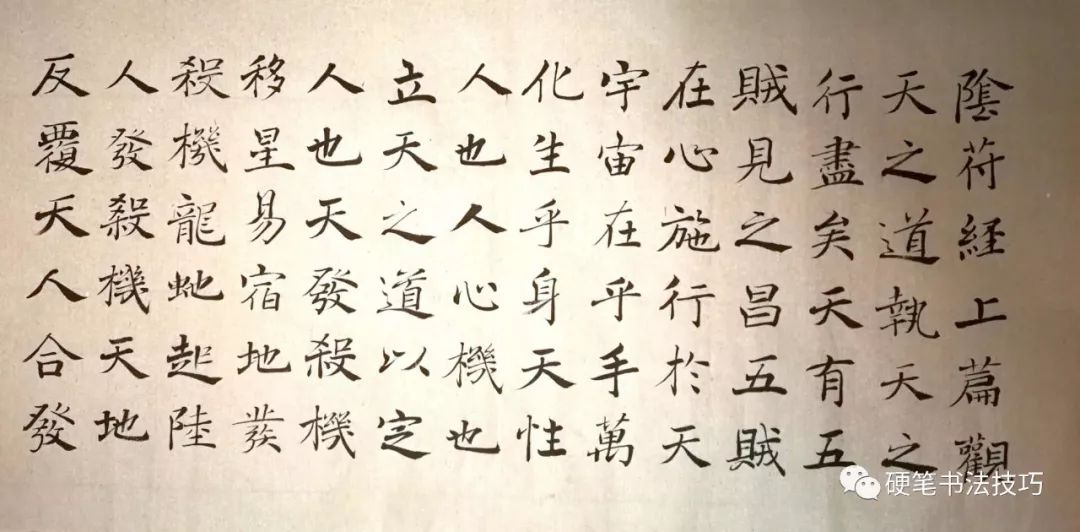 隂苻経上篇觀
天之道執天之
行盡矣天有五
賊見之昌五賊
在心施行於天
宇宙在乎手萬
化生乎身天性
人也人心機也
立天之道以定
人也天發殺機
移星易宿地發
殺機龍虵起陸
人發殺機天地
反覆天人合發
硬笔书法技巧